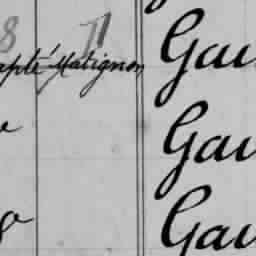 8 11
apté Matignon Gau
Gau
Gau